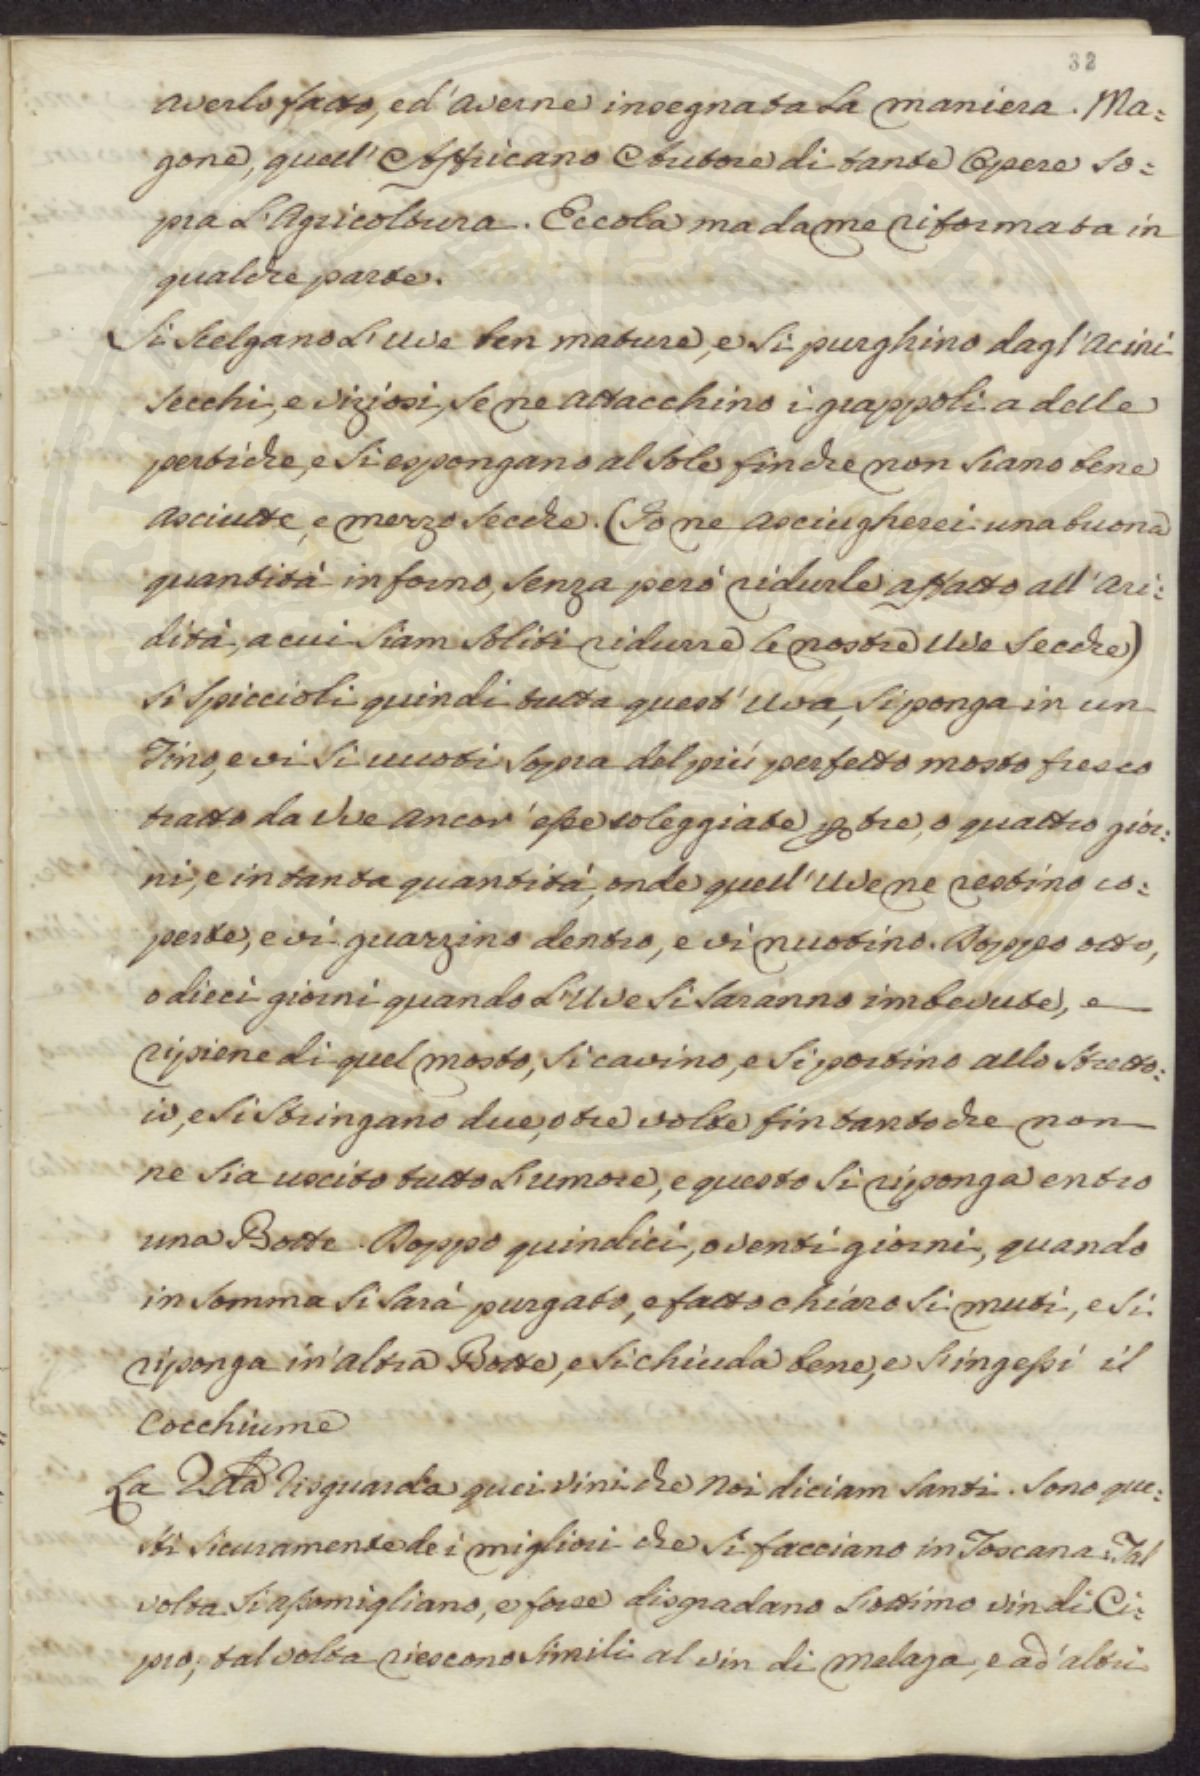 32
averlo fatto, ed'averne insegnata la maniera. Ma=
gone, quell'Affricano Autore di tante Opere so=
pra l'Agricoltura. Eccola ma da me riformata in
qualche parte.
Si Scelgano l'Uve ben mature, e si purghino dagl'acini
secchi, e viziosi, se ne attacchino i grappoli a delle
pertiche, e si espongano al Sole finche non siano bene
asciutte, e mezzo secche. (Io ne asciugherei una buona
quantità in forno, senza però ridurle affatto all'ari=
dità, a cui siam soliti ridurre le nostre Uve secche)
Si spiccioli quindi tutta quest'Uva, si ponga in un
Tino, e vi si vuoti sopra del più perfetto mosto fresco
tratto da Uve ancor'esse soleggiate per tre, o quattro gior=
ni, e in tanta quantità, onde quell'Uve ne restino co=
perte, e vi guazzino dentro, e vi nuotino. Doppo otto,
o dieci giorni quando l'Uve si saranno imbevute, e
ripiene di quel mosto, si cavino, e si portino allo stretto=
io, e si stringano due, o tre volte fin tanto che non
ne sia uscito tutto l'umore, e questo si riponga entro
una Botte. Doppo quindici, o venti giorni, quando
in somma si sarà purgato, e fatto chiaro si muti, e si
riponga in'altra Botte, e si chiuda bene, e s'ingessi il
Cocchiume
La 2da Risguarda quei vini che noi diciam santi. Sono que=
sti sicuramente de i migliori che si facciano in Toscana: Tal
volta si assomigliano, e forse disgradano l'ottimo vin di Ci=
pro; tal volta riescono simili al vin di Melaga, e ad'altri